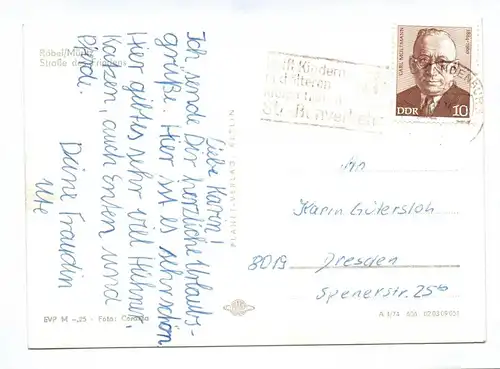 Röbel/Müritz
Straße des Friedens
Liebe Karin!
Ich sende Dir herzliche Urlaubs-
grüße. Hier ist es sehr schön
Hier gibt es sehr viel Hühner,
Katzen, auch Enten und
Pferde.
Deine Freundin
Ute
EVP M -,25 · Foto:
PLANET-VERLAG BERLIN
A 1/74
Hilft Kindern
und älteren
Straßenverkehr
CARL MOLTMANN
1884-1960
DDR
10
An
Karin Gütersloh
8019 Dresden
Spenerstr. 25b